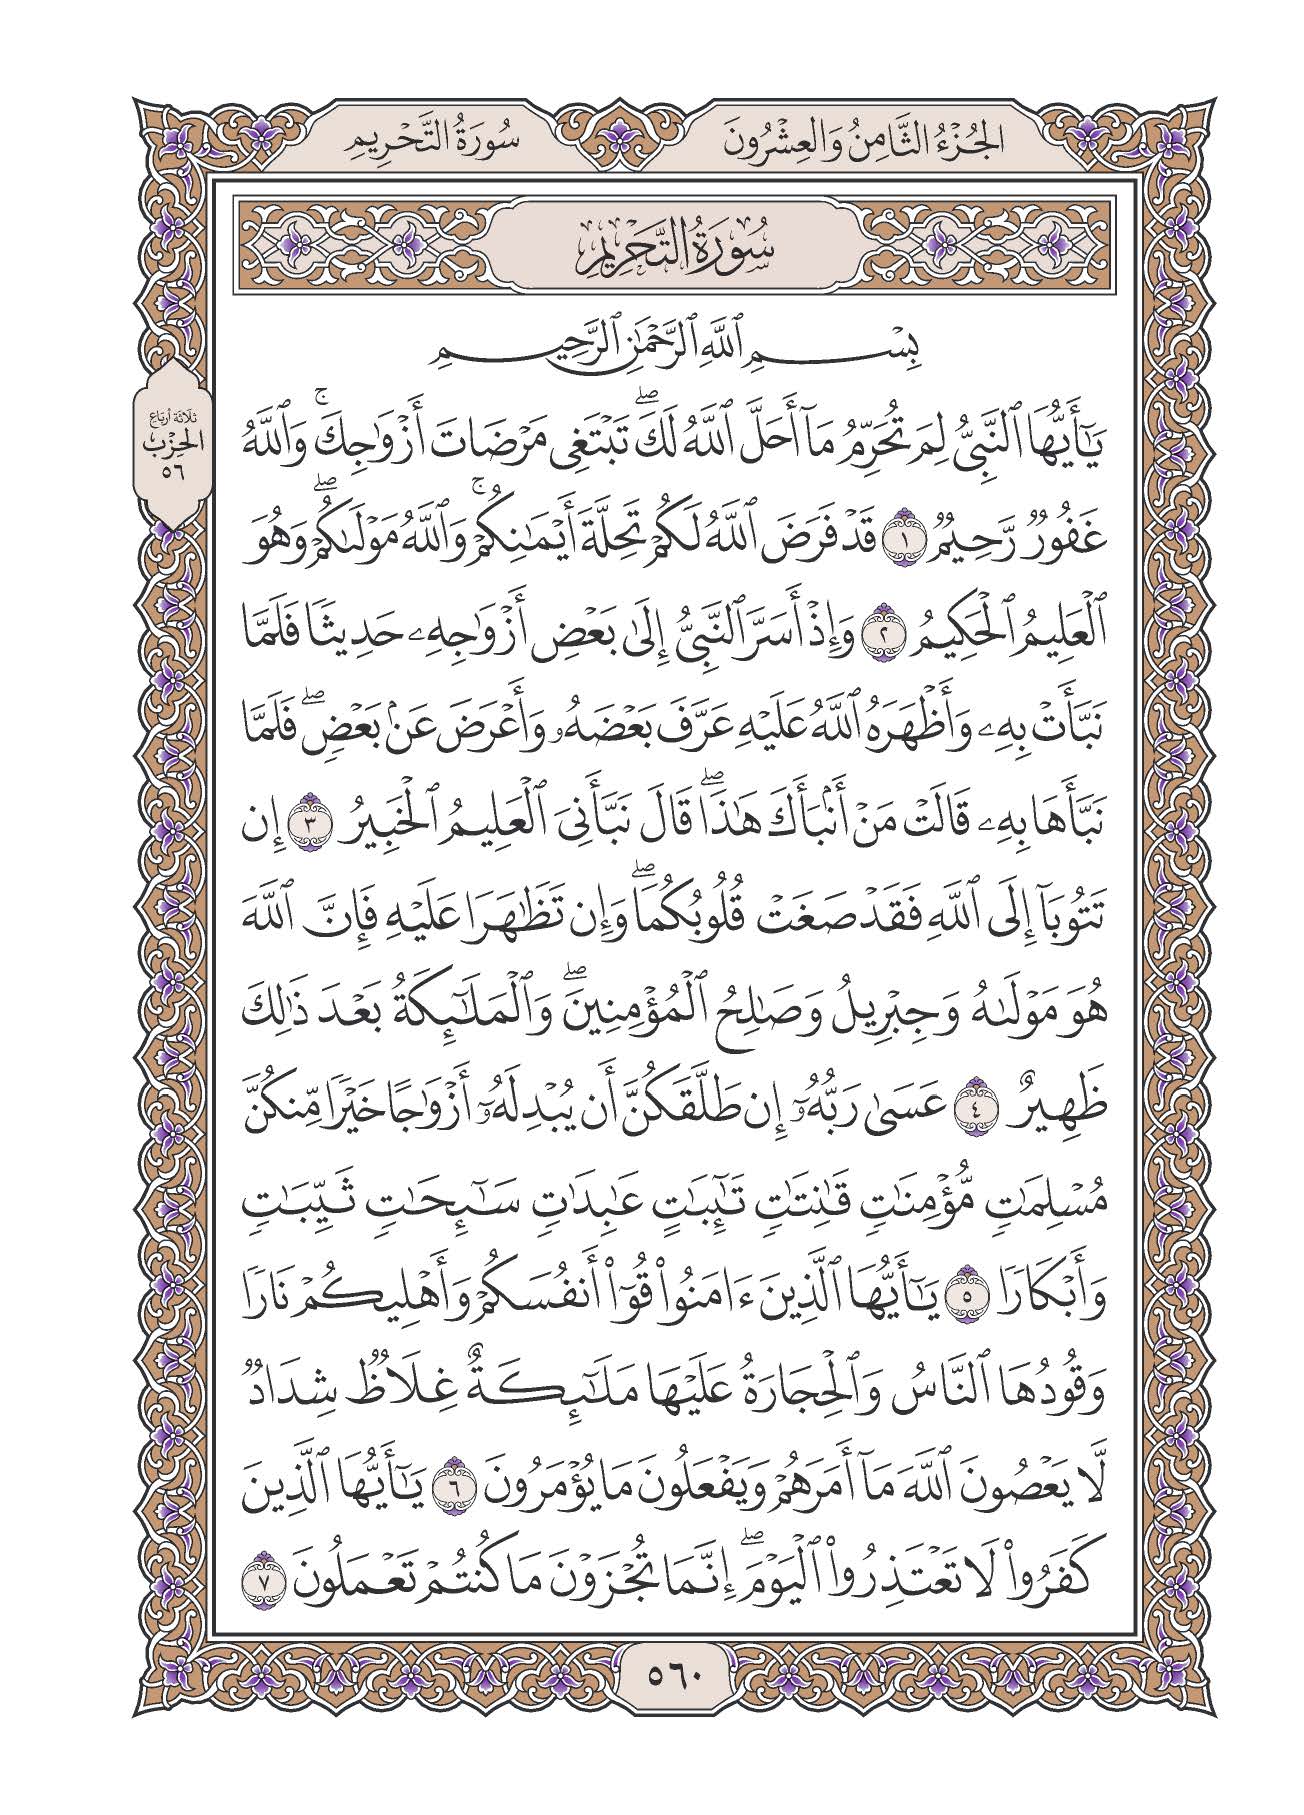 الجُزْءُ الثَّامِنُ وَالعِشْرُونَ
سُورَةُ التَّحْرِيمِ
سُورَةُ التَّحْرِيمِ
بِسْمِ ٱللَّهِ ٱلرَّحْمَٰنِ ٱلرَّحِيمِ
يَٰٓأَيُّهَا ٱلنَّبِيُّ لِمَ تُحَرِّمُ مَآ أَحَلَّ ٱللَّهُ لَكَۖ تَبْتَغِى مَرْضَاتَ أَزْوَٰجِكَۚ وَٱللَّهُ
غَفُورٌ رَّحِيمٌ ١ قَدْ فَرَضَ ٱللَّهُ لَكُمْ تَحِلَّةَ أَيْمَٰنِكُمْۚ وَٱللَّهُ مَوْلَىٰكُمْۖ وَهُوَ
ٱلْعَلِيمُ ٱلْحَكِيمُ ٢ وَإِذْ أَسَرَّ ٱلنَّبِيُّ إِلَىٰ بَعْضِ أَزْوَٰجِهِۦ حَدِيثًا فَلَمَّا
نَبَّأَتْ بِهِۦ وَأَظْهَرَهُ ٱللَّهُ عَلَيْهِ عَرَّفَ بَعْضَهُۥ وَأَعْرَضَ عَنۢ بَعْضٍۖ فَلَمَّا
نَبَّأَهَا بِهِۦ قَالَتْ مَنْ أَنۢبَأَكَ هَٰذَاۖ قَالَ نَبَّأَنِىَ ٱلْعَلِيمُ ٱلْخَبِيرُ ٣ إِن
تَتُوبَآ إِلَى ٱللَّهِ فَقَدْ صَغَتْ قُلُوبُكُمَاۖ وَإِن تَظَٰهَرَا عَلَيْهِ فَإِنَّ ٱللَّهَ
هُوَ مَوْلَىٰهُ وَجِبْرِيلُ وَصَٰلِحُ ٱلْمُؤْمِنِينَۖ وَٱلْمَلَٰٓئِكَةُ بَعْدَ ذَٰلِكَ
ظَهِيرٌ ٤ عَسَىٰ رَبُّهُۥٓ إِن طَلَّقَكُنَّ أَن يُبْدِلَهُۥٓ أَزْوَٰجًا خَيْرًا مِّنكُنَّ
مُسْلِمَٰتٍ مُّؤْمِنَٰتٍ قَٰنِتَٰتٍ تَٰٓئِبَٰتٍ عَٰبِدَٰتٍ سَٰٓئِحَٰتٍ ثَيِّبَٰتٍ
وَأَبْكَارًا ٥ يَٰٓأَيُّهَا ٱلَّذِينَ ءَامَنُوا۟ قُوٓا۟ أَنفُسَكُمْ وَأَهْلِيكُمْ نَارًا
وَقُودُهَا ٱلنَّاسُ وَٱلْحِجَارَةُ عَلَيْهَا مَلَٰٓئِكَةٌ غِلَاظٌ شِدَادٌ
لَّا يَعْصُونَ ٱللَّهَ مَآ أَمَرَهُمْ وَيَفْعَلُونَ مَا يُؤْمَرُونَ ٦ يَٰٓأَيُّهَا ٱلَّذِينَ
كَفَرُوا۟ لَا تَعْتَذِرُوا۟ ٱلْيَوْمَۖ إِنَّمَا تُجْزَوْنَ مَا كُنتُمْ تَعْمَلُونَ ٧
ثلاثة أرباع
الحزب
٥٦
٥٦٠